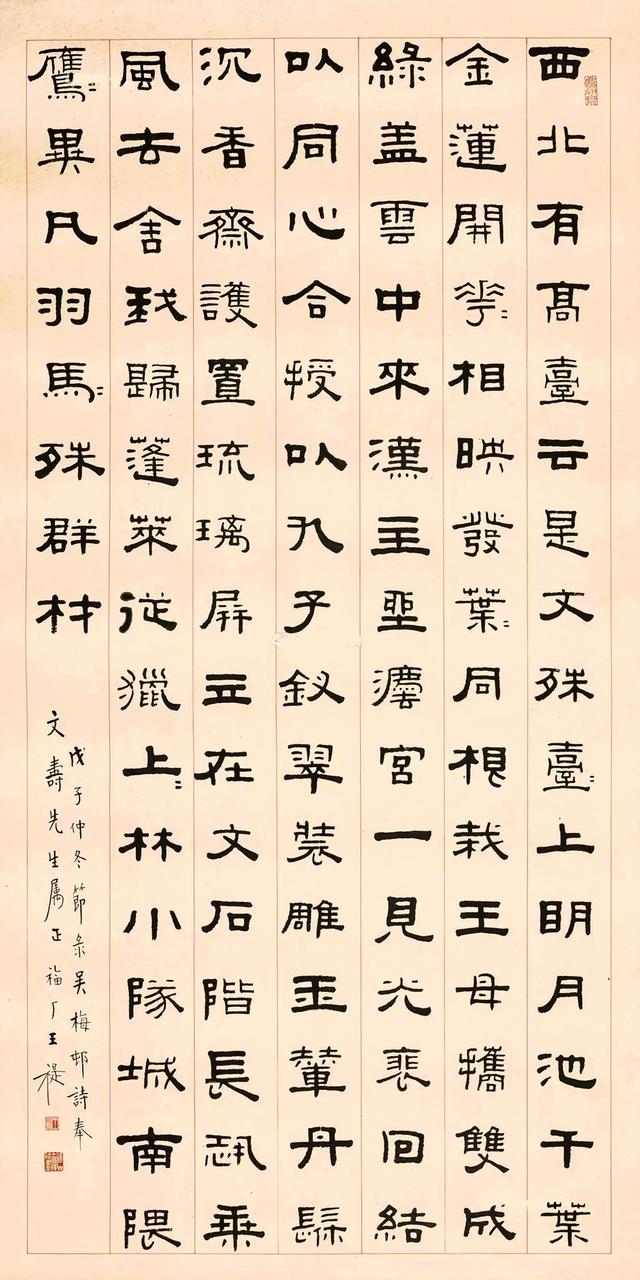 西北有髙臺云是文殊臺〻上眀月池千葉
金蓮開花〻相映發葉〻同根栽王母攜雙成
綠盖雲中來漢主坐灋宮一見光裴回結
以同心合授以九子釵翠裝雕玉輦丹髹
沉香齋護置琉璃屏立在文石階長恐乘
風去舍我歸蓬萊從獵上〻林小隊城南隈
鷹〻異凡羽馬〻殊群材
戊子仲冬節彔吴梅邨詩奉
文壽先生属正 福厂王禔